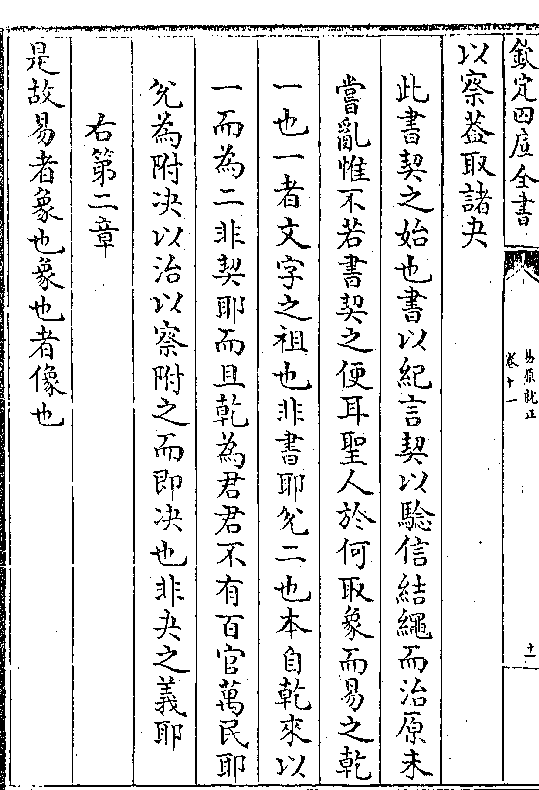 欽定四庫全書
易原就正
卷十一
十一
以察蓋取諸夬
此書契之始也書以紀言契以驗信結繩而治原未
嘗亂惟不若書契之便耳聖人於何取象而易之乾
一也一者文字之祖也非書耶兊二也本自乾來以
一而為二非契耶而且乾為君君不有百官萬民耶
兊為附决以治以察附之而即决也非夬之義耶
右第二章
是故易者象也象也者像也